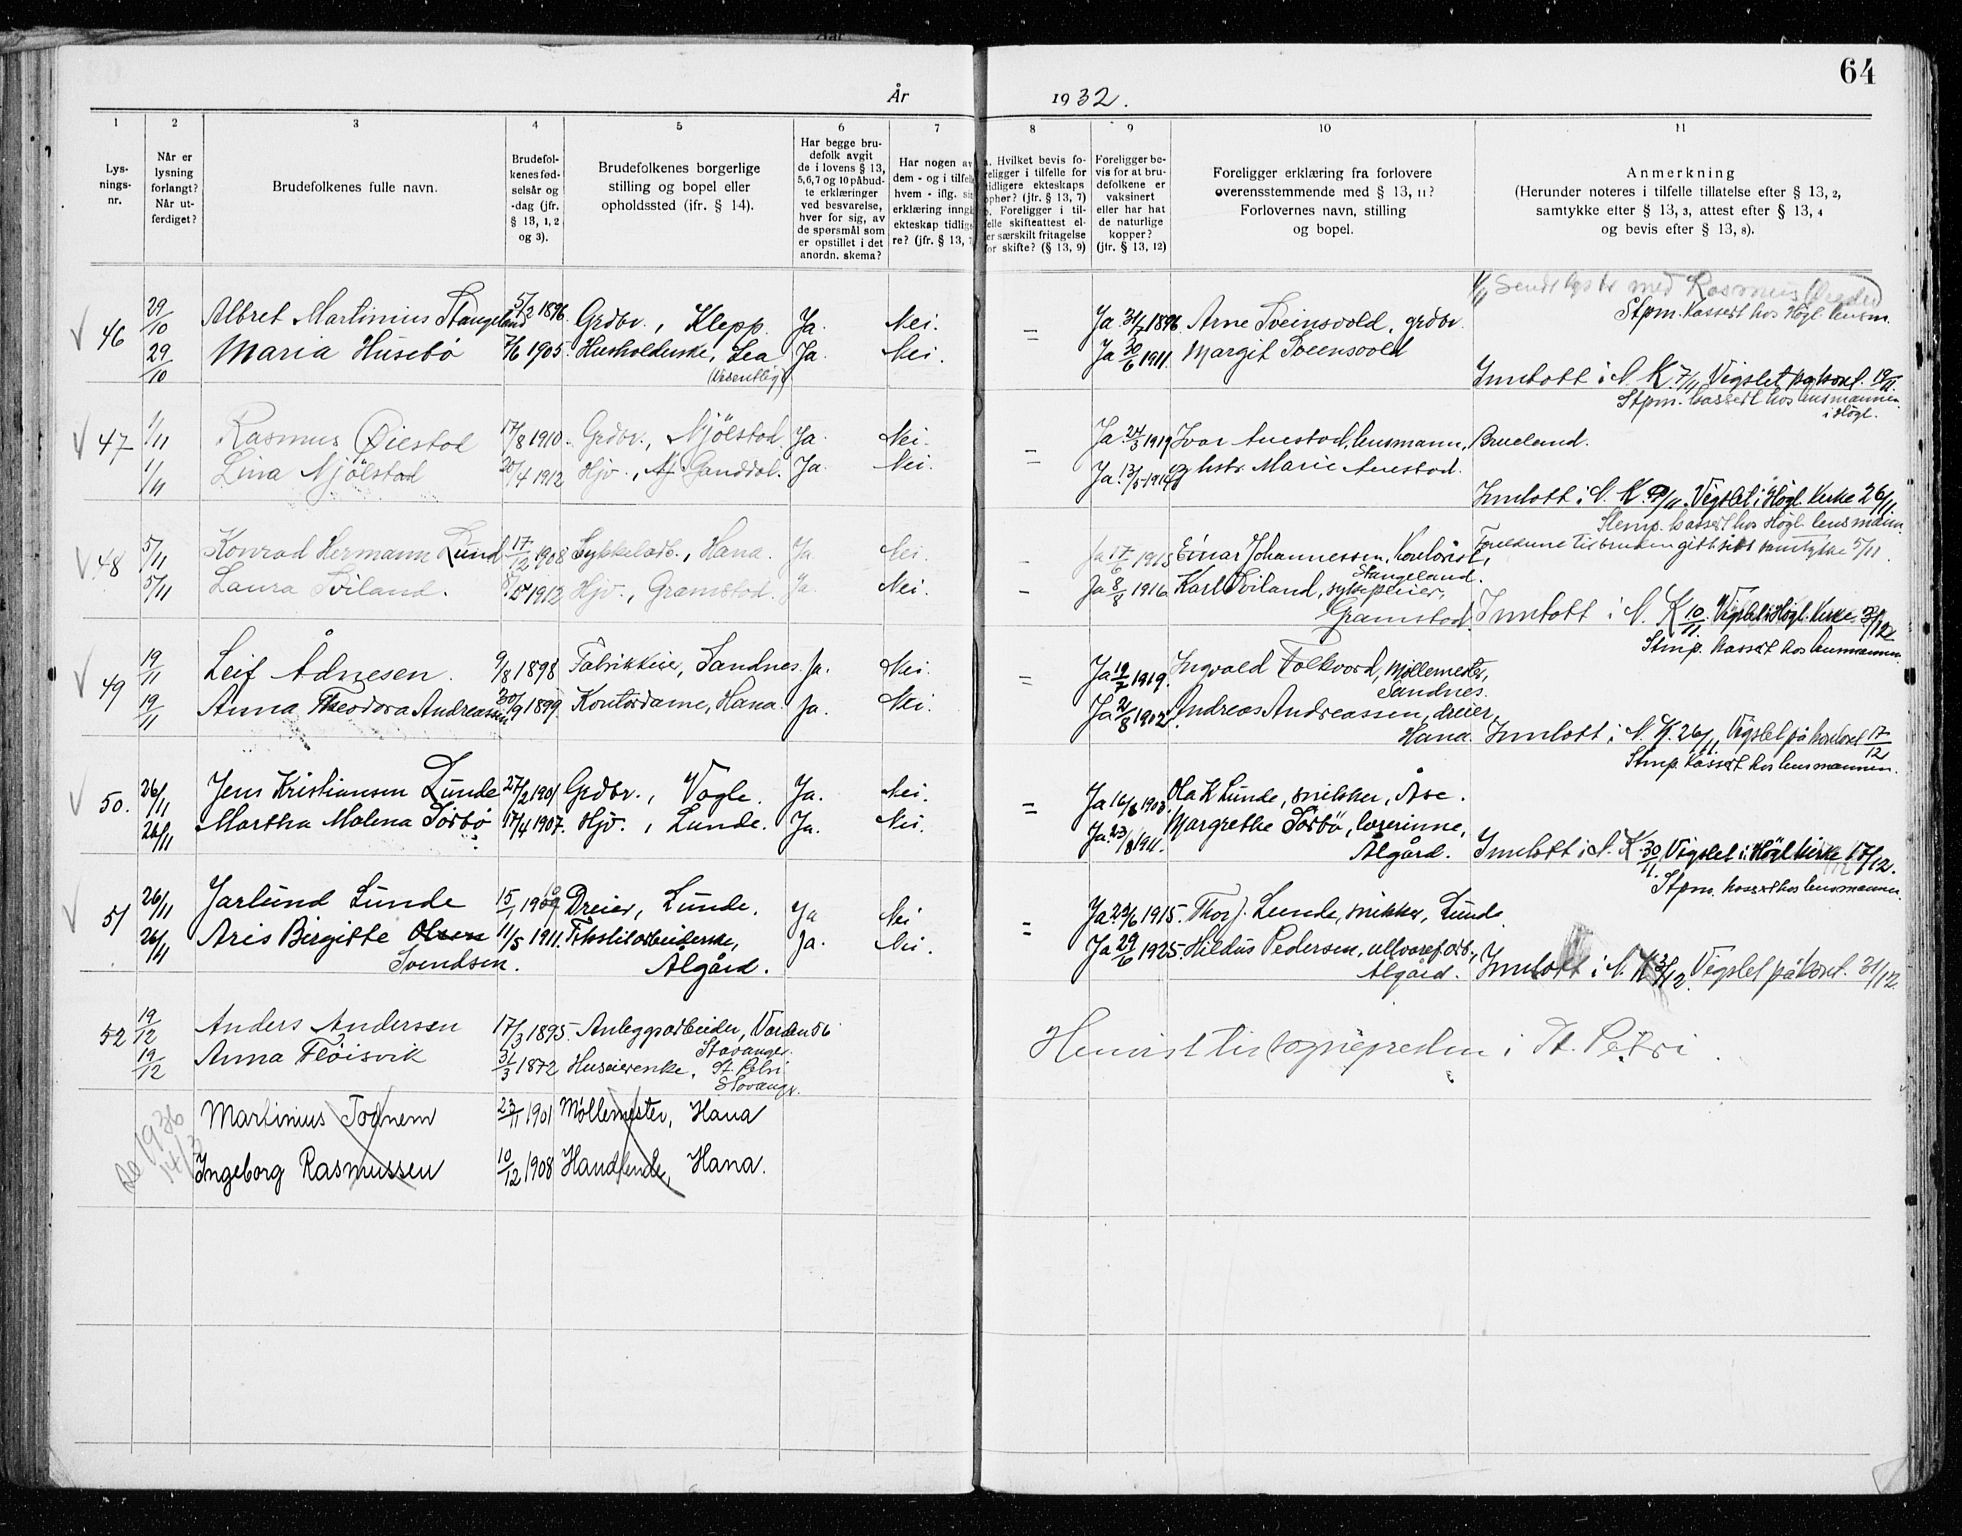 64
År 1932.
1 2 3 4 5 6 7 8 9 10 11
Lys-
nings-
nr.
Når er
lysning
forlangt?
Når ut-
ferdiget?
Brudefolkenes fulle navn.
Brudefol-
kenes fød-
selsår og
-dag (jfr.
§ 13, 1, 2
og 3).
Brudefolkenes borgerlige
stilling og bopel eller
opholdssted (jfr. § 14).
Har begge bru-
defolk avgit
de i lovens § 13,
5,6,7 og 10 påbud-
te erklæringer
ved besvarelse,
hver for sig, av
de spørsmål som
er opstillet i det
anordn. skema?
Har nogen av
dem - og i tilfelle
hvem - iflg. si
erklæring inngå
ekteskap tidlig
re? (jfr. § 13, 7
a. Hvilket bevis fo-
religger i tilfelle for
tidligere ekteskaps
ophør? (jfr. § 13, 7)
b. Foreligger i til-
felle skifteattest el-
er særskilt fritagelse
for skifte? (§ 13, 9)
Foreligger be-
vis for at bru-
defolkene er
vaksinert
eller har hat
de naturlige
kopper?
(jfr. § 13, 12)
Foreligger erklæring fra forlovere
overensstemmende med § 13, 11?
Forlovernes navn, stilling
og bopel.
Anmerkning
(Herunder noteres i tilfelle tillatelse efter § 13, 2,
samtykke efter § 13, 3, attest efter § 13, 4
og bevis efter § 13, 8).
med Rasmus
46 29/10 Albret Martinius Stangeland 5/2 1896. Grdbr., Klepp. Ja. Nei. = Ja 31/7 1896 Arne Sveinsvold, grdbr. Stpm. kassert hos Høgl. lensm.
29/10 Maria Husebö 7/6 1905. Husholderske, Lea Ja. Nei. Ja 30/6 1911. Margit Sveensvold
Innlott i N. K. 7/11 Vigslet på kont. 19/11.
Stpm. kassert hos lensmannen
i Høgl.
47 1/11 Rasmus Öiestad 17/8 1910. Grdbr., Njölstad. Ja. Nei. = Ja 24/3 1919 Ivar Auestad, lensmann, Brueland.
1/11 Lina Njölstad 20/4 1912 Hjv., Ganddal. Ja. Nei. Ja. 13/5 1914 hstr. Marie Auestad.
Innlott i N. K. 9/11. Vigslet i Høgl. kirke 26/11.
Stemp. kassert hos Høgl. lensmann.
48 5/11 Konrad Hermann Lund 17/12 1908 Sykkelarb., Hana. Ja Nei. - Ja 17/6 1915 Einar Johannessen, Stangeland. Foreldrene til bruden gitt sitt samtykke 5/11
5/11 Laura Sviland. 1912 Hjv., Gramstad. Ja Nei. - Ja 8/8 1916 Karl Sviland, sykepleier,
Gramstad. Innlott i N. K. 10/11. Vigslet i Høgl. kirke 3/12
Stmp. kassert hos lensmannen.
49 19/11 Leif Ådnesen. 9/8 1898 Fabrikkeier, Sandnes. Ja. Nei. = Ja 19/7 1919. Ingvald Folkvord, Møllemester,
Sandnes.
19/11 Anna Theodora Andreassen 30/9 1899. Kontordame, Hana. Ja. Nei. Ja 21/8 1902. Andreas Andreassen, dreier,
Hana. Innlott i N. K. 26/11. Vigslet på kontoret 17/12
Stmp. kassert hos lensmannen.
50. 26/11 Jens Kristiansen Lunde 27/2 1901 Grdbr., Vagle. Ja. Nei. = Ja 16/8 1903. Ola K Lunde, snikker, Åse.
26/11 Martha Malena Sörbö 17/4 1907. Hjv., Lunde. Ja. Nei. Ja. 23/8 1911. Margrethe Sörbö, lærerinne,
Ålgård. Innlott i N. K. 30/11. Vigslet i Høgl kirke 17/12.
Stpm. kassert hos lensmannen
51 26/11 Jarlund Lunde 15/1 1909 Dreier, Lunde. Ja Nei = Ja 23/6 1915. Thorj. Lunde, snikker, Lunde.
26/11 Aris Birgitte Olsen 11/5 1911. Tekstilarbeiderske, Ja. Nei. Ja 29/6 1925 Hildus Pedersen, ullvarefarb.,
Svendsen. Ålgård. Ålgård. Innlott i N. K. 3/12. Vigslet på kont. 31/12.
52 19/12 Anders Andersen 17/3 1895. Anleggsarbeider, Varden 56
Stavanger.
19/12 Anna Fløisvik 31/3 1872 Huseierenke, St. Petri
Stavanger.
Henvist til sognepresten i St. Petri.
1936
14/3
Martinius Tognem 23/11 1901 Møllemester, Hana
Ingeborg Rasmussen 10/12 1908 Handlende, Hana.